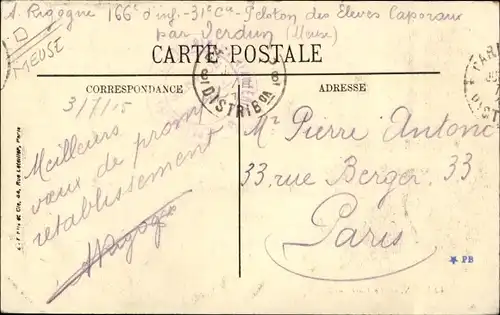 A. Rigogne 166e d'inf - 31e Cie - Peloton des Eleves Caporaux
par Verdun (Meuse)
D
MEUSE
CARTE POSTALE
CORRESPONDANCE
ADRESSE
DISTRIBON
PARI
DIST
3/7/15
Meilleurs
vœux de prompt
rétablissement
ARigogne
Mr Pierre Antoine
33, rue Berger. 33
Paris
PB